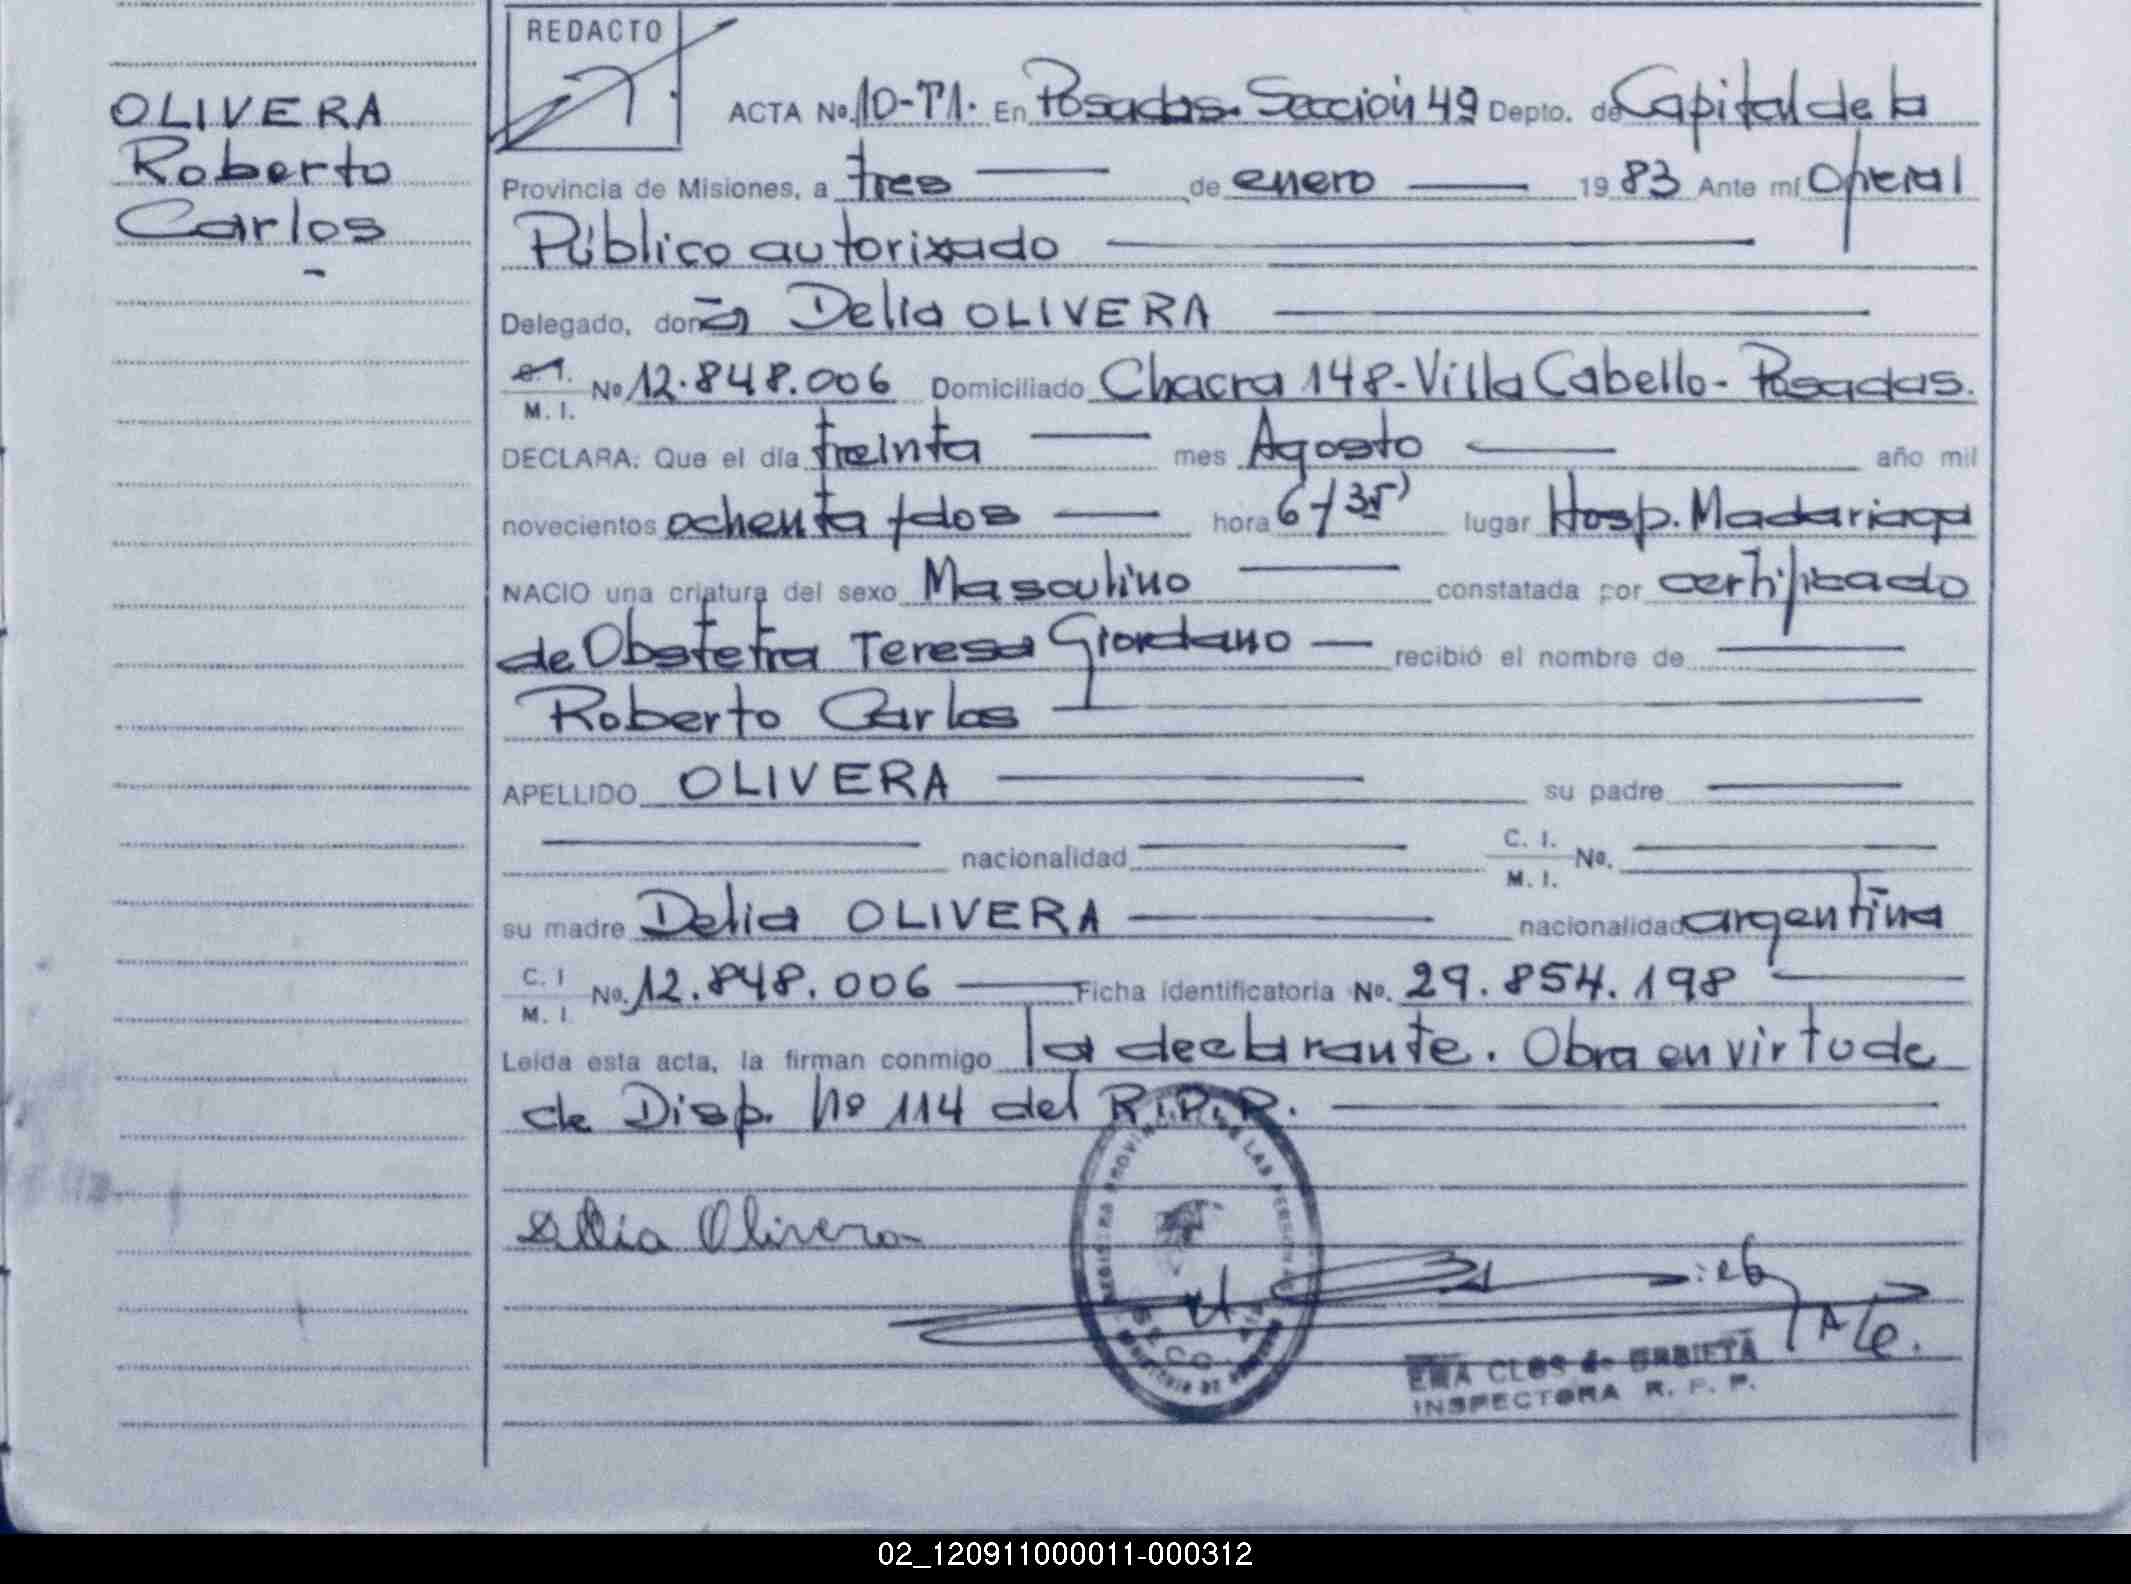 REDACTO
OLIVERA
Roberto
Carlos
ACTA Nº. 10-T1. En Posadas. Sección 4ª Depto. de Capital de la
Provincia de Misiones, a tres de enero 1983 Ante mí Oficial
Público autorizado
Delegado, donã Delia OLIVERA
C. I. M. I. Nº 12.848.006 Domiciliado Chacra 148-Villa Cabello-Posadas.
DECLARA: Que el día treinta mes Agosto año mil
novecientos ochenta y dos hora 6 y 35' lugar Hosp. Madariaga
NACIO una criatura del sexo Masculino constatada por certificado
de Obstetra Teresa Giordano recibió el nombre de
Roberto Carlos
APELLIDO OLIVERA su padre
nacionalidad C. I. M. I. Nº.
su madre Delia OLIVERA nacionalidad argentina
C. I M. I. Nº. 12.848.006 Ficha identificatoria Nº. 29.854.198
Leída esta acta, la firman conmigo la declarante. Obra en virtud de
de Disp. Nº 114 del R.P.P.
Delia Olivera
EMA CLOS de URBIETA
INSPECTORA R. P. P.
02_120911000011-000312